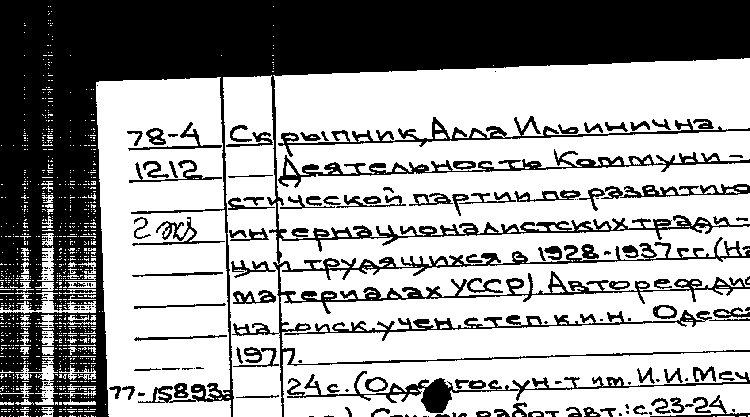 78-4 Скрыпник, Алла Ильинична.
1212 Деятельность Коммуни-
стической партии по развитию
2 экз интернационалистских тради-
ций трудящихся в 1928-1937 гг. (На
материалах УССР). Автореф. дис
на соиск. учен. степ. к.и.н. Одесса
1977.
77-15893а 24 с. (Одес. гос. ун-т им. И.И. Меч
Список работ авт.: с. 23-24.